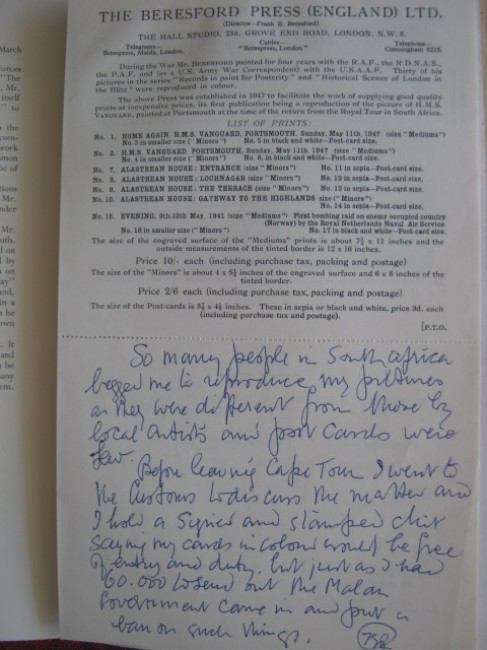 THE BERESFORD PRESS (ENGLAND) LTD.
(Director—Frank E. Beresford)
THE HALL STUDIO, 23a, GROVE END ROAD, LONDON, N.W. 8.
Telegrams— Cables— Telephone—
Berespress, Maida, London. "Berespress, London" Cunningham 6215.
During the War Mr. BERESFORD painted for four years with the R.A.F., the R.D.N.A.S.,
the P.A.F. and (as a U.S. Army War Correspondent) with the U.S.A.A.F. Thirty of his
pictures in the series "Records in paint for Posterity" and "Historical Scenes of London in
the Blitz" were reproduced in colour.
The above Press was established in 1947 to facilitate the work of supplying good quality
prints at inexpensive prices, its first publication being a reproduction of the picture of H.M.S.
VANGUARD, painted at Portsmouth at the time of the return from the Royal Tour in South Africa.
LIST OF PRINTS:
No. 1. HOME AGAIN. H.M.S. VANGUARD, PORTSMOUTH, Sunday, May 11th, 1947 (size "Mediums")
No. 3 in smaller size ("Minors") No. 5 in black and white—Post-card size.
No. 2. H.M.S. VANGUARD, PORTSMOUTH, Sunday, May 11th, 1947 (size "Mediums")
No. 4 in smaller size ("Minors") No. 6, in black and white—Post-card size.
No. 7. ALASTREAN HOUSE: ENTRANCE (size "Minors") No. 11 in sepia—Post-card size.
No. 8. ALASTREAN HOUSE: LOCHNAGAR (size "Minors") No. 12 in sepia—Post-card size.
No. 9. ALASTREAN HOUSE: THE TERRACE (size "Minors") No. 13 in sepia—Post-card size.
No. 10. ALASTREAN HOUSE: GATEWAY TO THE HIGHLANDS size ("Minors")
No. 14 in sepia—Post-card size.
No. 15. EVENING, 9th-10th May, 1941 (size "Mediums") First bombing raid on enemy occupied country
(Norway) by the Royal Netherlands Naval Air Service.
No. 16 in smaller size ("Minors") No. 17 in black and white—Post-card size.
The size of the engraved surface of the "Mediums" prints is about 7¾ x 11 inches and the
outside measurements of the tinted border is 12 x 16 inches.
Price 10/- each (including purchase tax, packing and postage)
The size of the "Minors" is about 4 x 5¾ inches of the engraved surface and 6 x 8 inches of the
tinted border.
Price 2/6 each (including purchase tax, packing and postage)
The size of the Post-cards is 3¼ x 4¾ inches. These in sepia or black and white, price 3d. each
(including purchase tax and postage).
[P.T.O.
So many people in South Africa
begged me to reproduce my pictures
as they were different from those by
local artists and post cards were
few. Before leaving Cape Town I went to
the Customs to discuss the matter and
I hold a signed and stamped chit
saying my cards in colour would be free
of entry and duty, but just as I had
60.000 to send out the Malan
Government came in and put a
ban on such things.